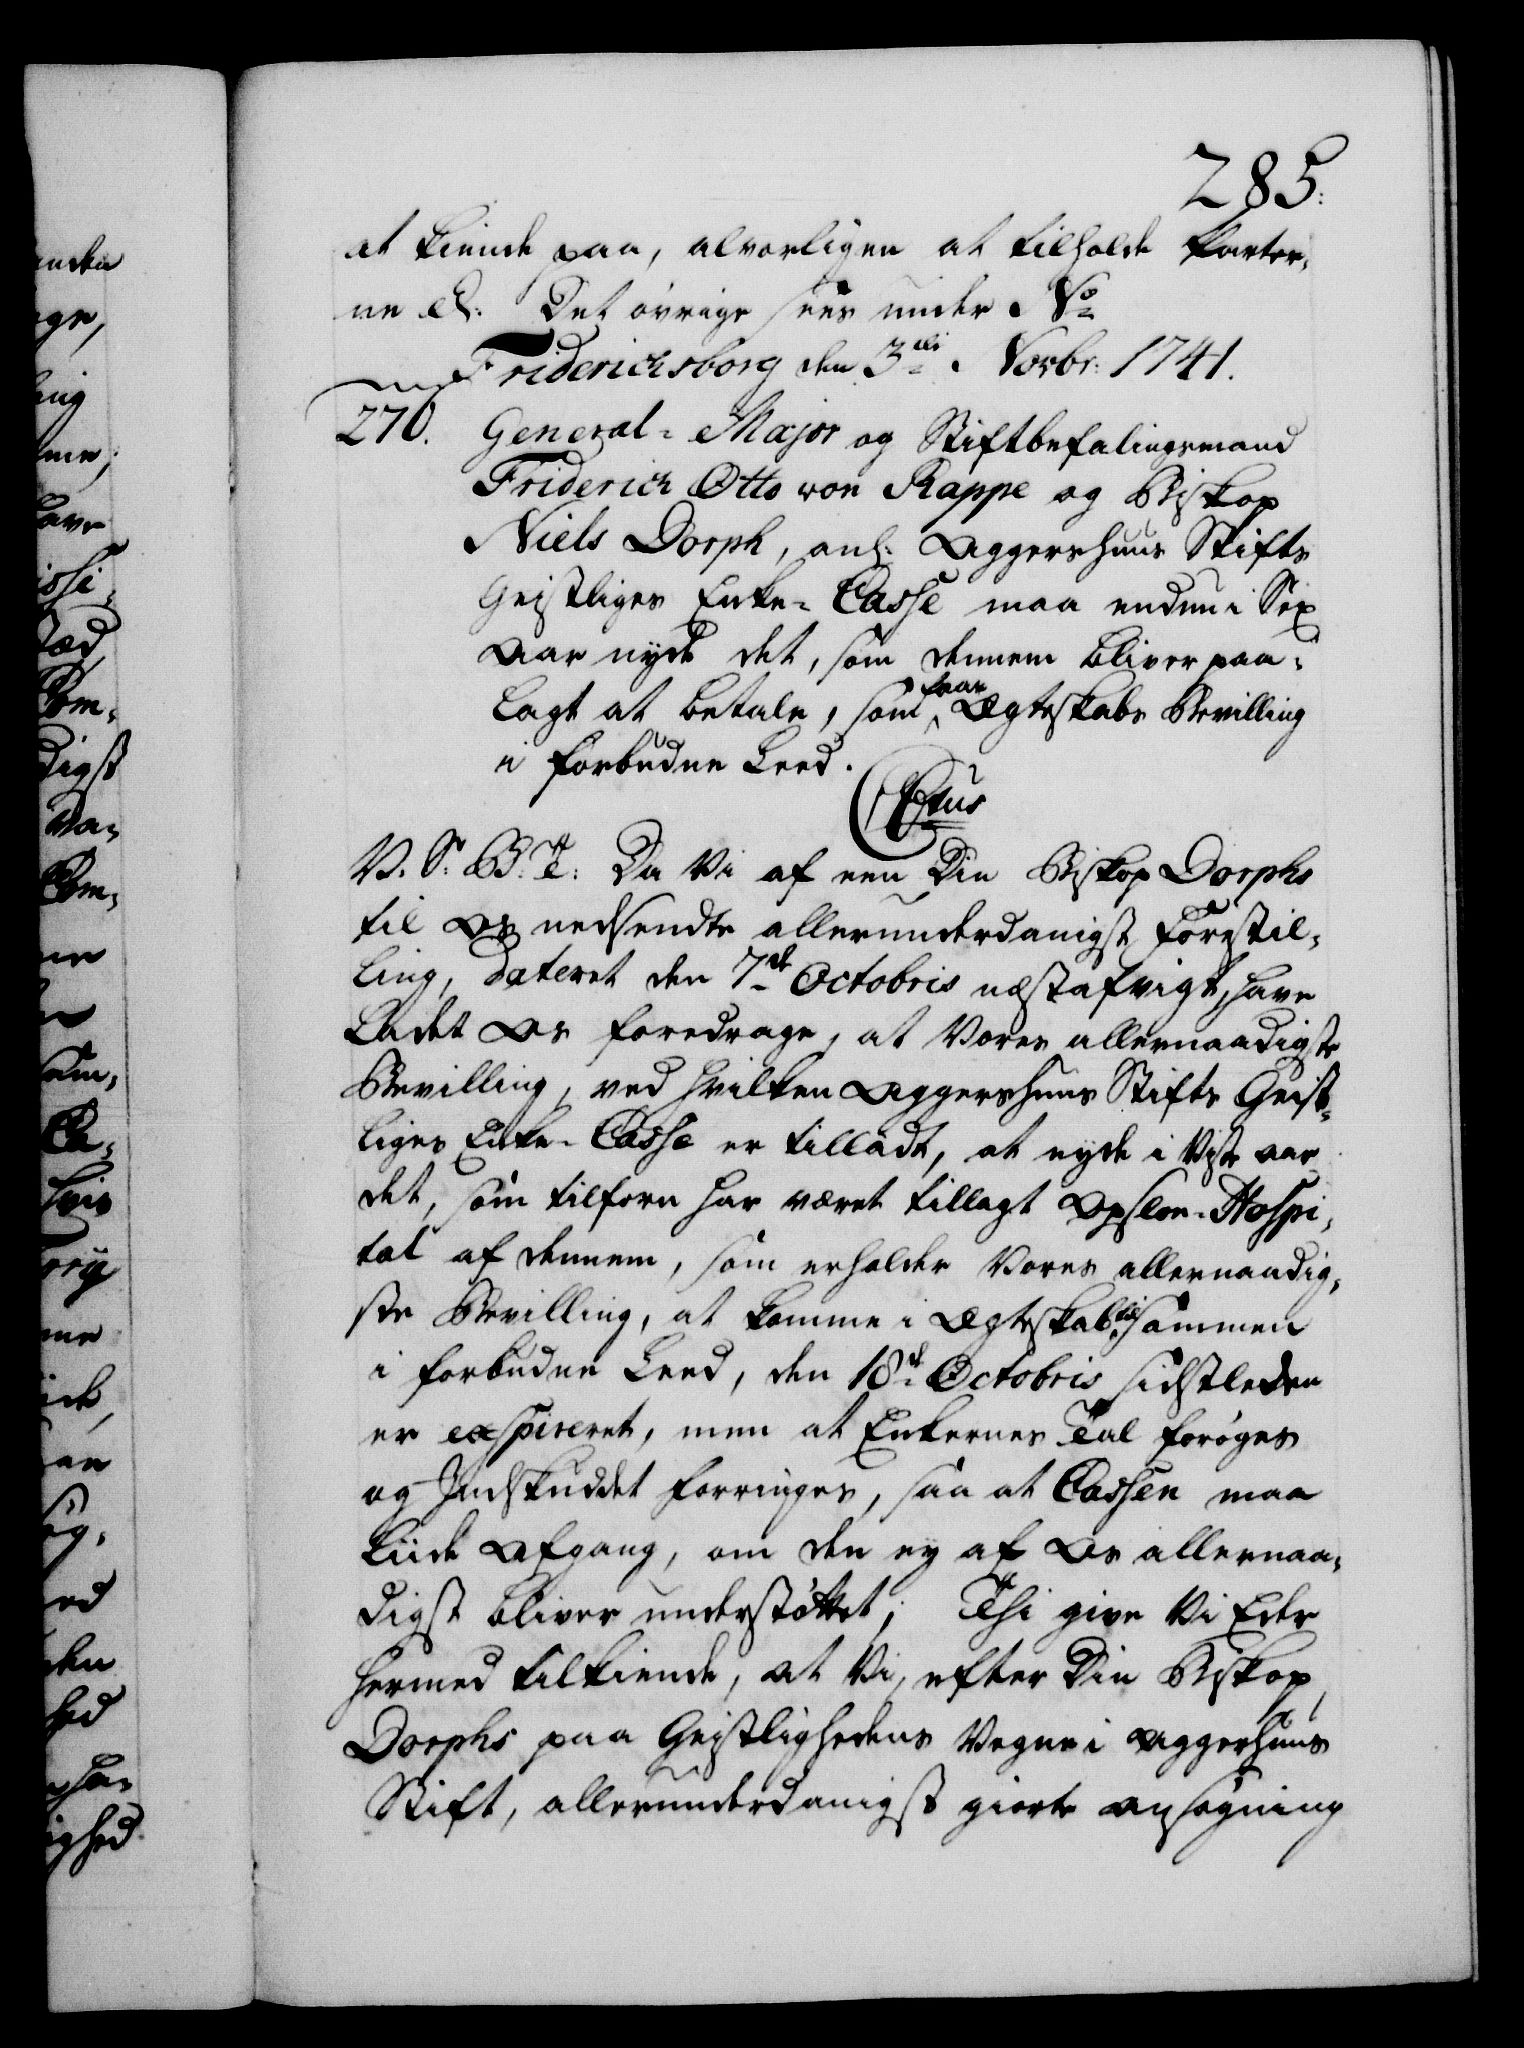 285.
at kiende paa, alvorligen at tilholde Parter,
ne etc. Det øvrige sees under No
Friderichsborg den 3die Novbr: 1741.
270. General-Major og Stiftbefalingsmand
Friderich Otto von Rappe og Biskop
Niels Dorph, anl. Aggershuus Stifts
Geistliges Enke-Casse maa endnu i Sex
Aar nyde det, som dennem bliver paa-
lagt at betale, som faar Ægteskabs Bevilling
i forbudne Leed.
C 6tus
V. S. B. T: Da Vi af een Din Biskop Dorphs
til Os nedsendte allerunderdanigst Forestil-
ling, dateret den 7de Octobris næstafvigt, have
ladet Os foredrage, at Vores allernaadigste
Bevilling, ved hvilken Aggershuus Stifts Geist-
liges Enke-Casse er tilladt, at nyde i Visse Aar
det, som tilforn har været tillagt Opsloe-Hospi-
tal af dennem, som erholder Vores allernaadig-
ste Bevilling, at komme i Ægteskab til sammen
i forbudne Leed, den 18de Octobris sidstleden
er expireret, men at Enkernes Tal forøges
og Indskuddet forringes, saa at Cassen maa
liide Afgang, om den ey af Os allernaa-
digst bliver understøttet; Thi give Vi Eder
hermed tilkiende, at Vi, efter Din Biskop
Dorphs paa Geistlighedens Vegne i Aggerhuus
Stift, allerunderdanigst giorte Ansøgning